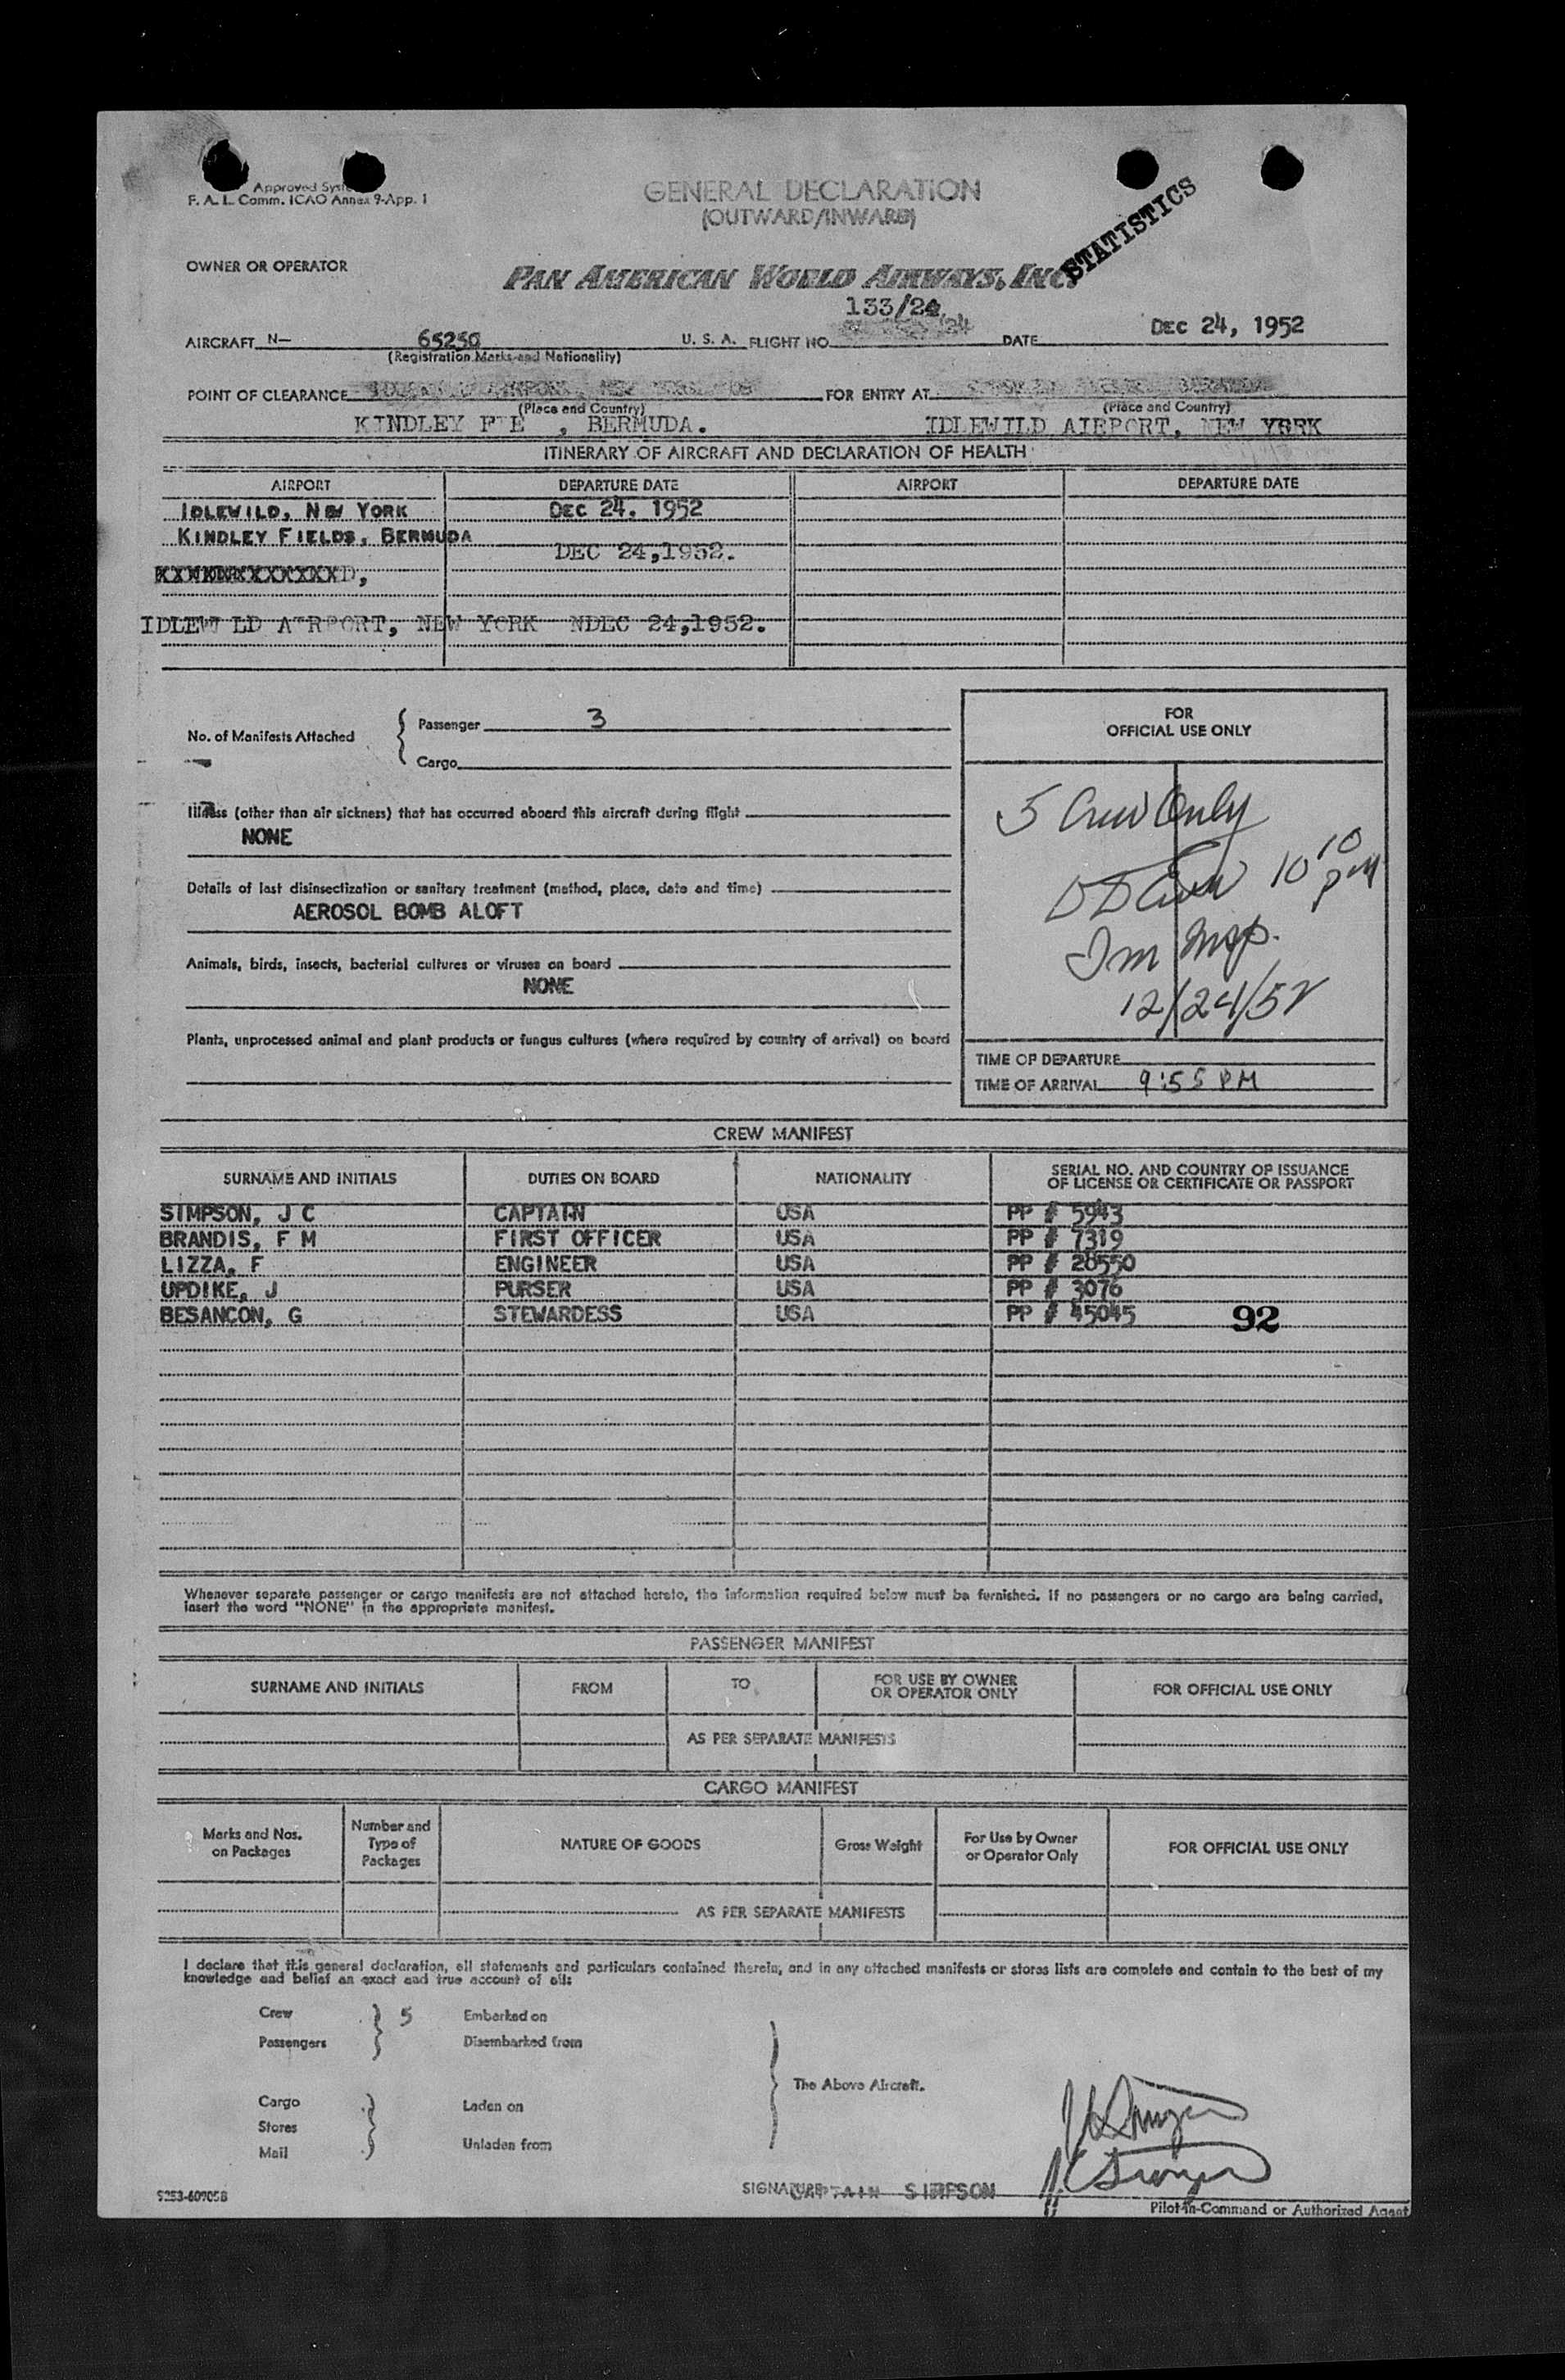 Approved Syste
F. A. L. Comm. ICAO Annex 9-App. 1
GENERAL DECLARATION
(OUTWARD/INWARD)
STATISTICS
OWNER OR OPERATOR
PAN AMERICAN WORLD AIRWAYS, INC.
133/24
AIRCRAFT N— 65250 U. S. A. FLIGHT NO. 24 DATE DEC 24, 1952
(Registration Marks and Nationality)
POINT OF CLEARANCE FOR ENTRY AT
(Place and Country) (Place and Country)
KINDLEY F E , BERMUDA. IDLEWILD AIRPORT, NEW YORK
ITINERARY OF AIRCRAFT AND DECLARATION OF HEALTH
AIRPORT DEPARTURE DATE AIRPORT DEPARTURE DATE
IDLEWILD, NEW YORK DEC 24, 1952
KINDLEY FIELDS, BERMUDA DEC 24,1952.
IDLEW LD A RPORT, NEW YORK NDEC 24,1952.
No. of Manifests Attached { Passenger 3
Cargo
FOR
OFFICIAL USE ONLY
Illness (other than air sickness) that has occurred aboard this aircraft during flight
NONE
5 Crew Only
Details of last disinsectization or sanitary treatment (method, place, date and time)
AEROSOL BOMB ALOFT
10 10 PM
Animals, birds, insects, bacterial cultures or viruses on board
NONE
Im Insp.
12/24/52
Plants, unprocessed animal and plant products or fungus cultures (where required by country of arrival) on board
TIME OF DEPARTURE
TIME OF ARRIVAL 9:55 PM
CREW MANIFEST
SURNAME AND INITIALS DUTIES ON BOARD NATIONALITY SERIAL NO. AND COUNTRY OF ISSUANCE
OF LICENSE OR CERTIFICATE OR PASSPORT
SIMPSON, J C CAPTAIN USA PP # 5943
BRANDIS, F M FIRST OFFICER USA PP # 7319
LIZZA, F ENGINEER USA PP # 28550
UPDIKE, J PURSER USA PP # 3076
BESANCON, G STEWARDESS USA PP # 45045 92
Whenever separate passenger or cargo manifests are not attached hereto, the information required below must be furnished. If no passengers or no cargo are being carried,
insert the word "NONE" in the appropriate manifest.
PASSENGER MANIFEST
SURNAME AND INITIALS FROM TO FOR USE BY OWNER
OR OPERATOR ONLY FOR OFFICIAL USE ONLY
AS PER SEPARATE MANIFESTS
CARGO MANIFEST
Marks and Nos.
on Packages Number and
Type of
Packages NATURE OF GOODS Gross Weight For Use by Owner
or Operator Only FOR OFFICIAL USE ONLY
AS PER SEPARATE MANIFESTS
I declare that this general declaration, all statements and particulars contained therein, and in any attached manifests or stores lists are complete and contain to the best of my
knowledge and belief an exact and true account of all:
Crew } 5 Embarked on
Passengers Disembarked from
The Above Aircraft.
Cargo Laden on
Stores
Mail Unladen from
SIGNATURE CAPTAIN SIMPSON
S253-60905B
Pilot-in-Command or Authorized Agent